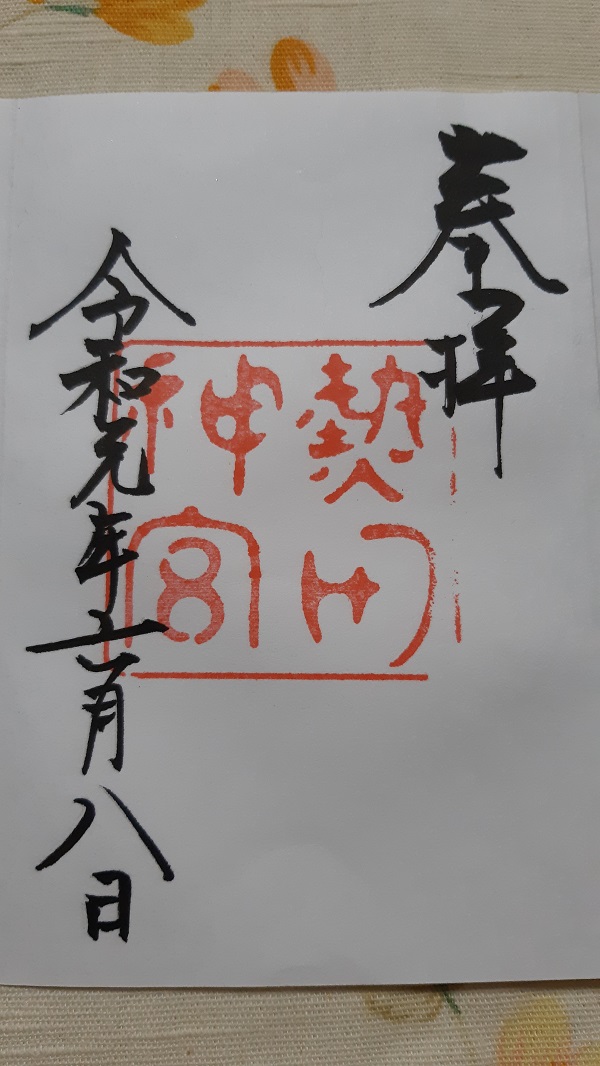 奉拝
熱田
神宮
令和元年六月八日